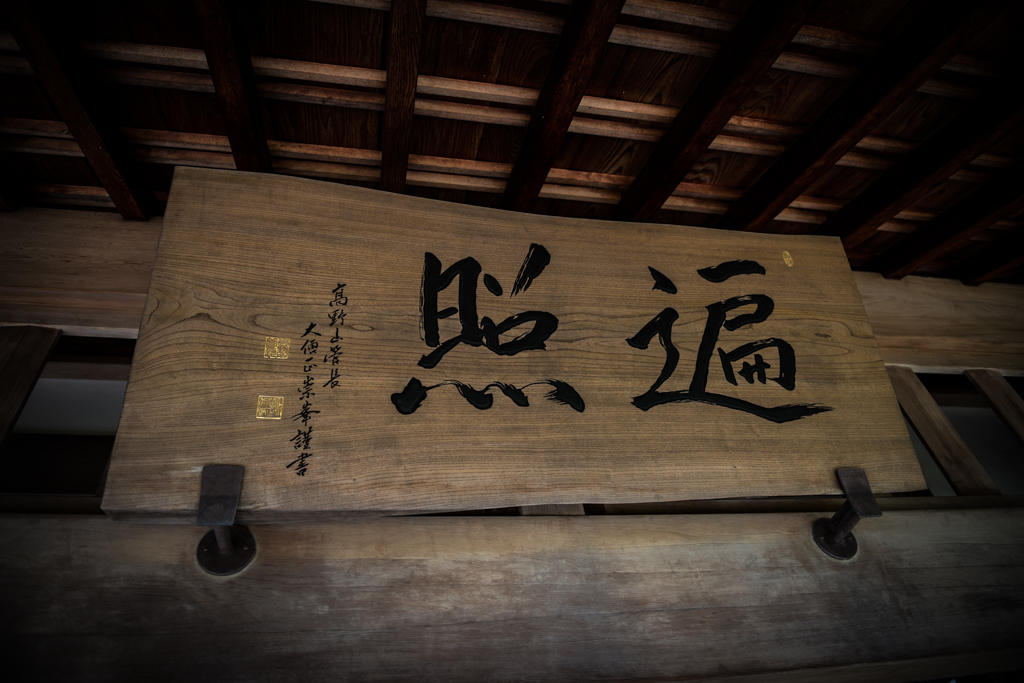 遍照
高野山管長
大僧正崇峯謹書